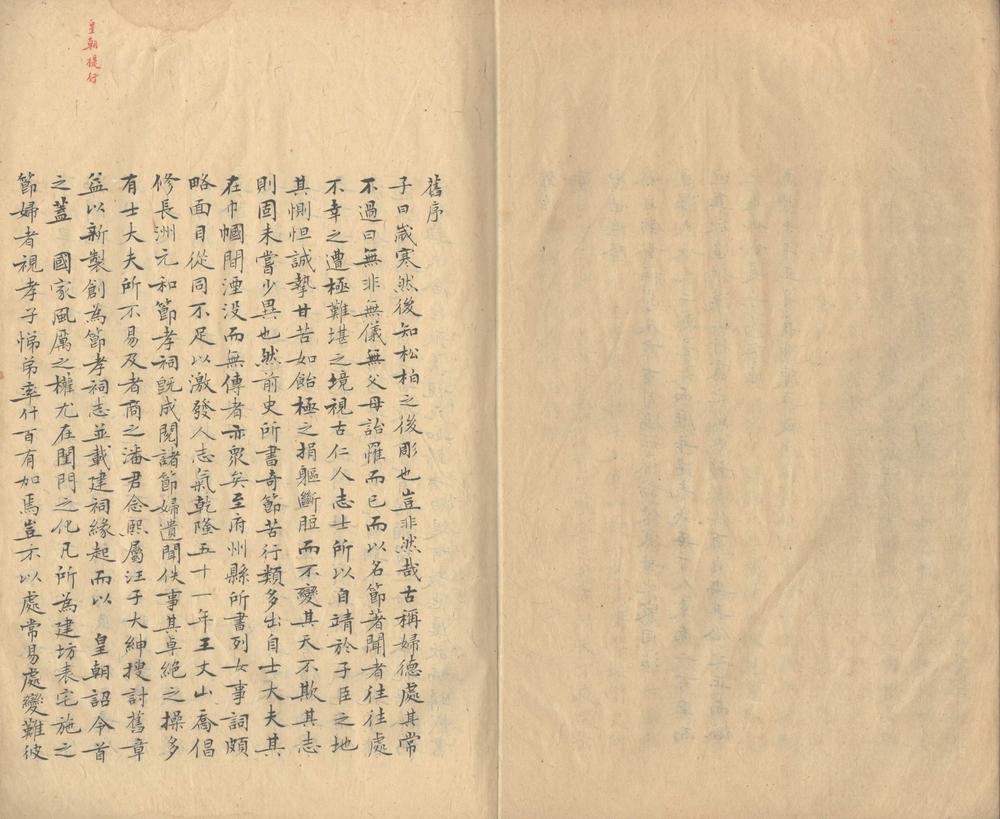 皇朝提行
舊序
子曰歲寒然後知松柏之後彫也豈非然哉古稱婦德處其常
不過曰無非無儀無父母詒罹而已而以名節著聞者往往處
不幸之遭極難堪之境視古仁人志士所以自靖於子臣之地
其惻怛誠摯甘苦如飴極之捐軀斷脰而不變其天不欺其志
則固未嘗少異也然前史所書奇節苦行類多出自士大夫其
在巾幗間湮没而無傳者亦衆矣至府州縣所書列女事詞頗
略面目從同不足以激發人志氣乾隆五十一年王丈山喬倡
修長洲元和節孝祠旣成閱諸節婦遺聞佚事其卓絶之操多
有士大夫所不易及者商之潘君念熙屬汪子大紳搜討舊章
益以新製創為節孝祠志並載建祠緣起而以 皇朝詔令首
之蓋 國家風厲之權尤在閨門之化凡所為建坊表宅施之
節婦者視孝子悌弟率什百有加焉豈不以處常易處變難彼